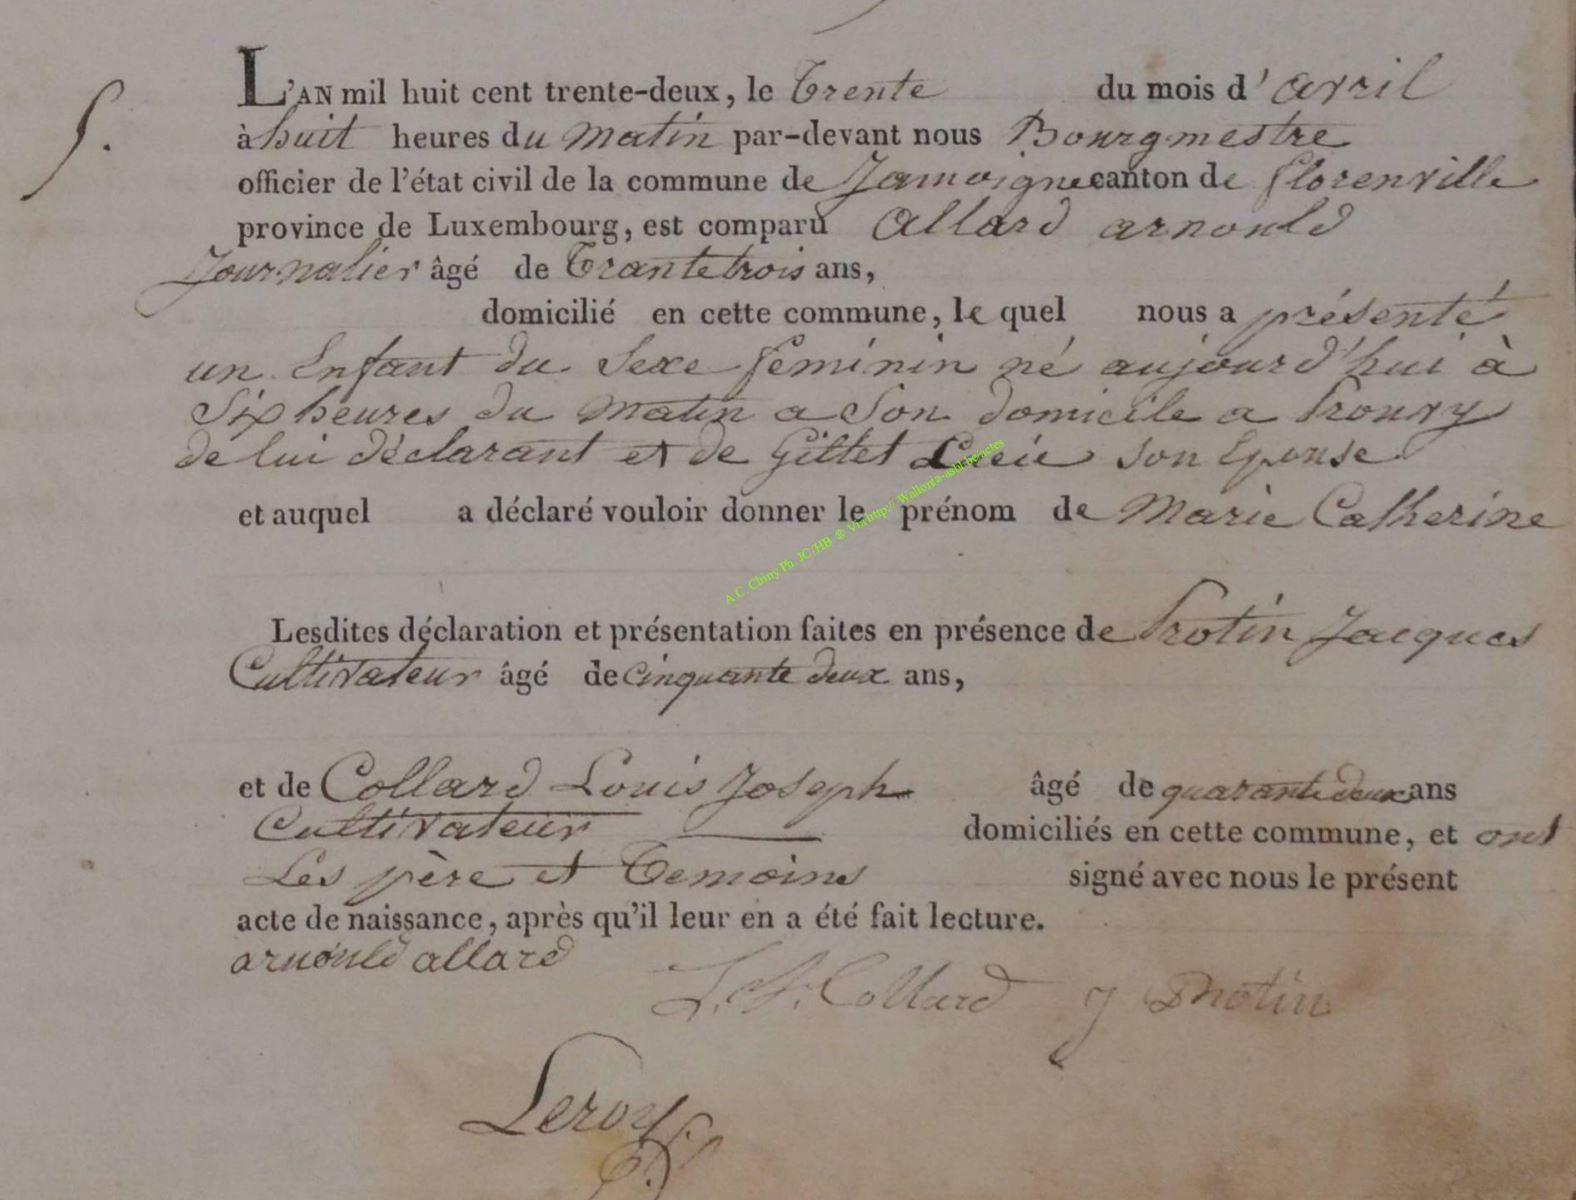 5.
L'AN mil huit cent trente-deux, le Trente du mois d'avril
à huit heures du Matin par-devant nous Bourgmestre
officier de l'état civil de la commune de Jamoigne canton de florenville
province de Luxembourg, est comparu allard arnould
Journalier âgé de Trante trois ans,
domicilié en cette commune, le quel nous a présenté
un Enfant du Sexe feminin né aujourd'hui à
Six heures du Matin a Son domicile a Prouvy
de lui déclarant et de Gillet son Epouse
et auquel a déclaré vouloir donner le prénom de Marie Catherine
A.C. Chiny Ph. JC/HB ® Via http:// Wallonia-asbl.be/actes
Lesdites déclaration et présentation faites en présence de Protin Jacques
Cultivateur âgé de Cinquante deux ans,
et de Collard Louis Joseph âgé de quarante deux ans
Cultivateur domiciliés en cette commune, et ont
Les père et Temoins signé avec nous le présent
acte de naissance, après qu'il leur en a été fait lecture.
arnould allard
Collard J Protin
Leroy